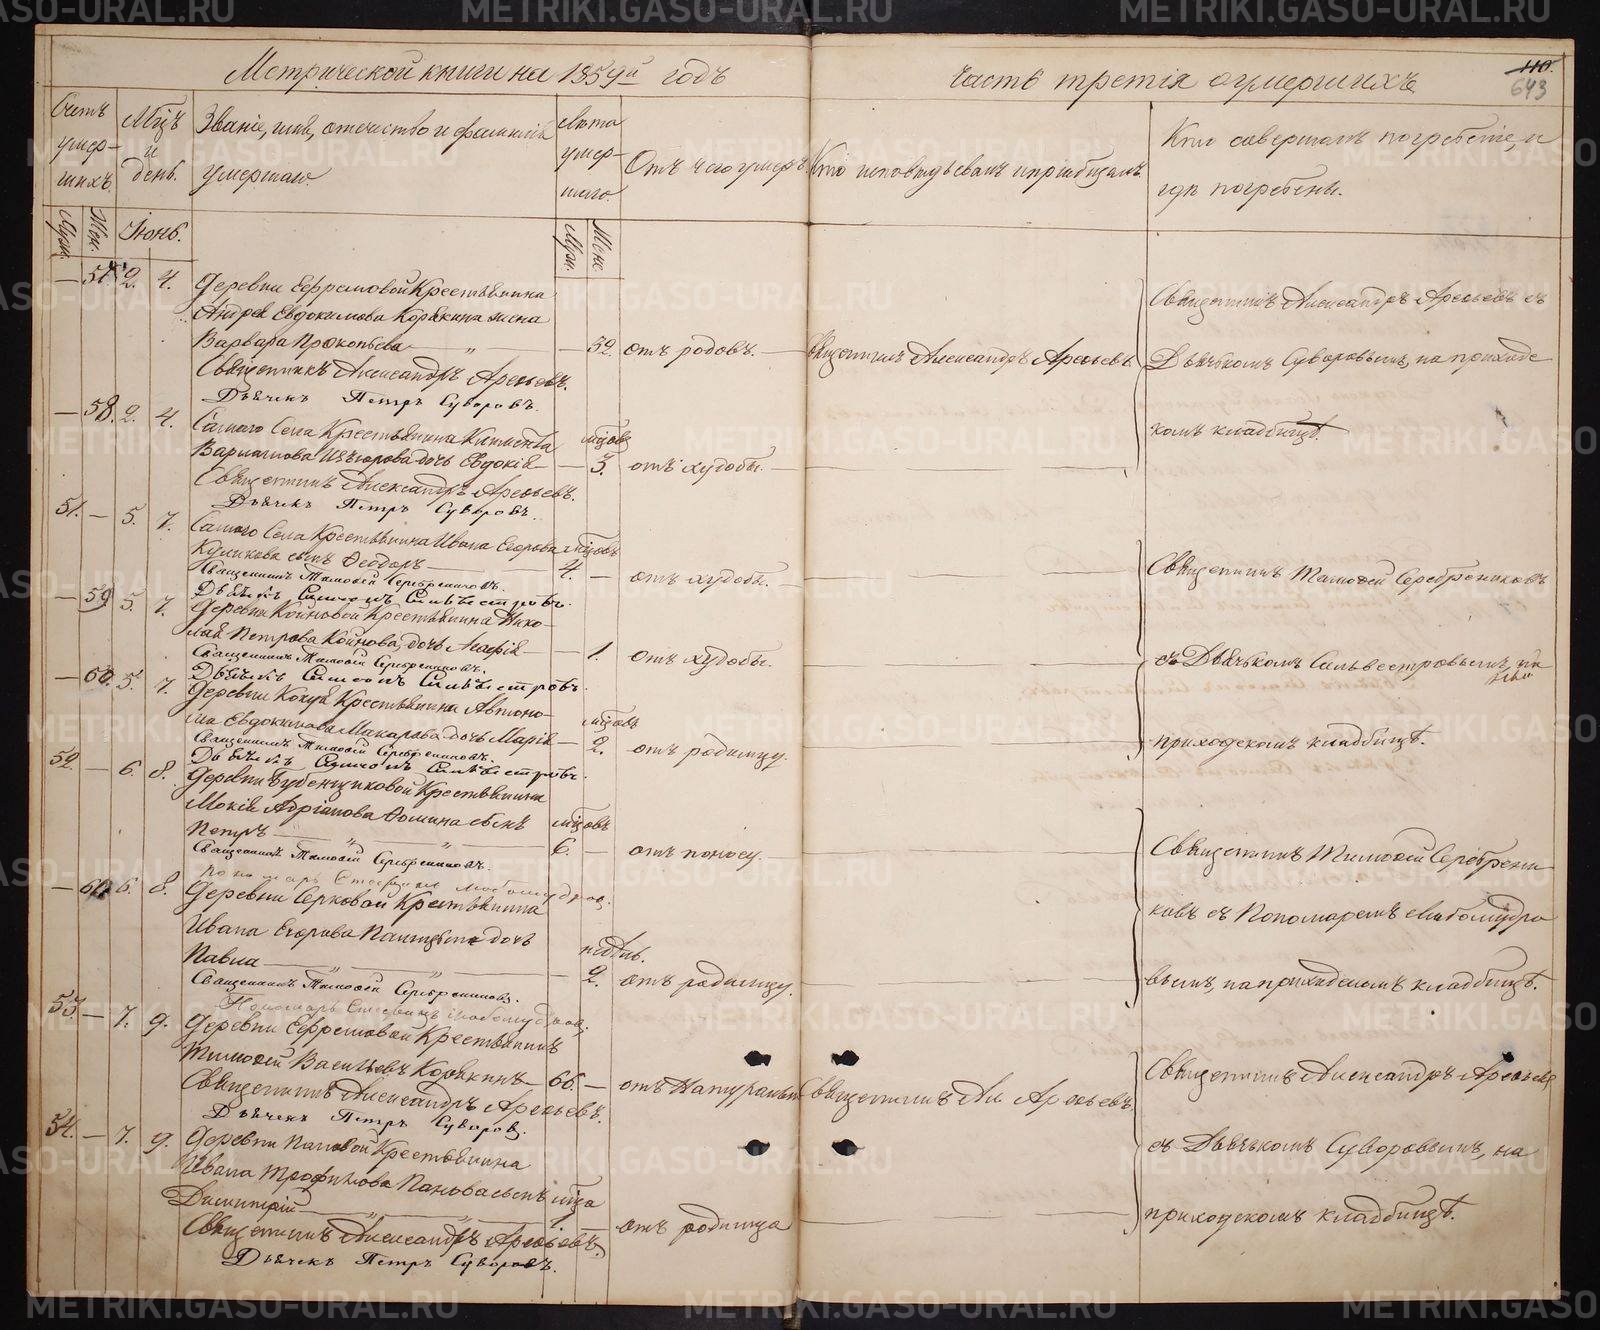 Метрической книги на 1859й годъ
часть третія о умершихъ
110.
643
Счетъ умер- шихъ.
Мцъ и день.
Званіе, имя, отечество и фамилія умершаго.
Лѣта умер- шаго.
Отъ чего умеръ.
Кто исповѣдывалъ и пріобщалъ.
Кто совершалъ погребеніе, и гдѣ погребены.
Муж.
Жен.
Іюнь.
Муж.
Жен
57. 2. 4. Деревни Ефремовой Крестьянина
Андрея Евдокимова Корякина жена
Варвара Прокопьева — 52. отъ родовъ. — Священникъ Александръ Арефьевъ
Священникъ Александръ Арефьевъ.
Дьячекъ Петръ Суворовъ.
Священникъ Александръ Арефьевъ съ
Дьячкомъ Суворовымъ, на приходс
комъ кладбищѣ.
— 58. 2. 4. Самаго Села Крестьянина Климента мцовъ
Дочь Евдокія — 3. отъ худобы. —
Священникъ Александръ Арефьевъ.
Дьячекъ Петръ Суворовъ.
51. — 5. 7. Самаго Села Крестьянина Ивана Егорова мцовъ
Куликова сынъ Феодоръ — 4. — отъ худобы. —
Священникъ Тимофей Серебрениковъ.
Дьячекъ Симеонъ Сильвестровъ.
Священникъ Тимофей Серебрениковъ
— 59 5. 7. Деревни Койновой Крестьянина Нико-
лая Петрова Койнова, дочь Агафія — 1. отъ худобы.
Священникъ Тимофей Серебрениковъ.
Дьячекъ Симеонъ Сильвестровъ.
съ Дьячкомъ Сильвестровымъ, на
— 60. 5. 7. Деревни Крестьянина Автоно-
ма Евдокимова Макарова дочь Марія — мцовъ 2. отъ родимцу.
Священникъ Тимофей Серебрениковъ.
Дьячекъ Симеонъ Сильвестровъ.
приходскомъ кладбищѣ.
52. — 6. 8. Деревни Бубенщиковой Крестьянина
Мокія Адріанова Фомина сынъ мцовъ
Петръ — 6. — отъ поносу. —
Священникъ Тимофей Серебрениковъ.
Пономарь Стефанъ Любомудров.
Священникъ Тимофей Серебрени
ковъ съ Пономаремъ Любомудро
вымъ, на приходскомъ кладбищѣ.
— 6. 8. Деревни Серковой Крестьянина
Ивана Егорова дочь недѣль.
Павла — 2. отъ родимцу.
Священникъ Тимофей Серебрениковъ.
Пономарь Стефанъ Любомудров.
53. — 7. 9. Деревни Ефремовой Крестьянинъ
Тимофей Васильевъ Корякинъ — 66. — отъ Натуральн Священникъ Ал. Арефьевъ.
Священникъ Александръ Арефьевъ.
Дьячекъ Петръ Суворов.
Священникъ Александръ Арефьевъ
съ Дьячкомъ Суворовымъ, на
приходскомъ кладбищѣ.
54. — 7. 9. Деревни Пановой Крестьянина
Ивана Трофимова Панова сынъ мца
Димитрій — 1. — отъ родимца
Священникъ Александръ Арефьевъ.
Дьячекъ Петръ Суворовъ.
METRIKI.GASO-URAL.RU